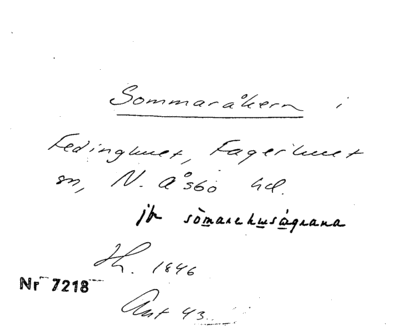 Sommaråkern i
Fedinghult, Fagerhult
sn, N. Åsbo hd.
jfr sòmarehuságrana
Lh. 1846
Nr 7218
Ant 43